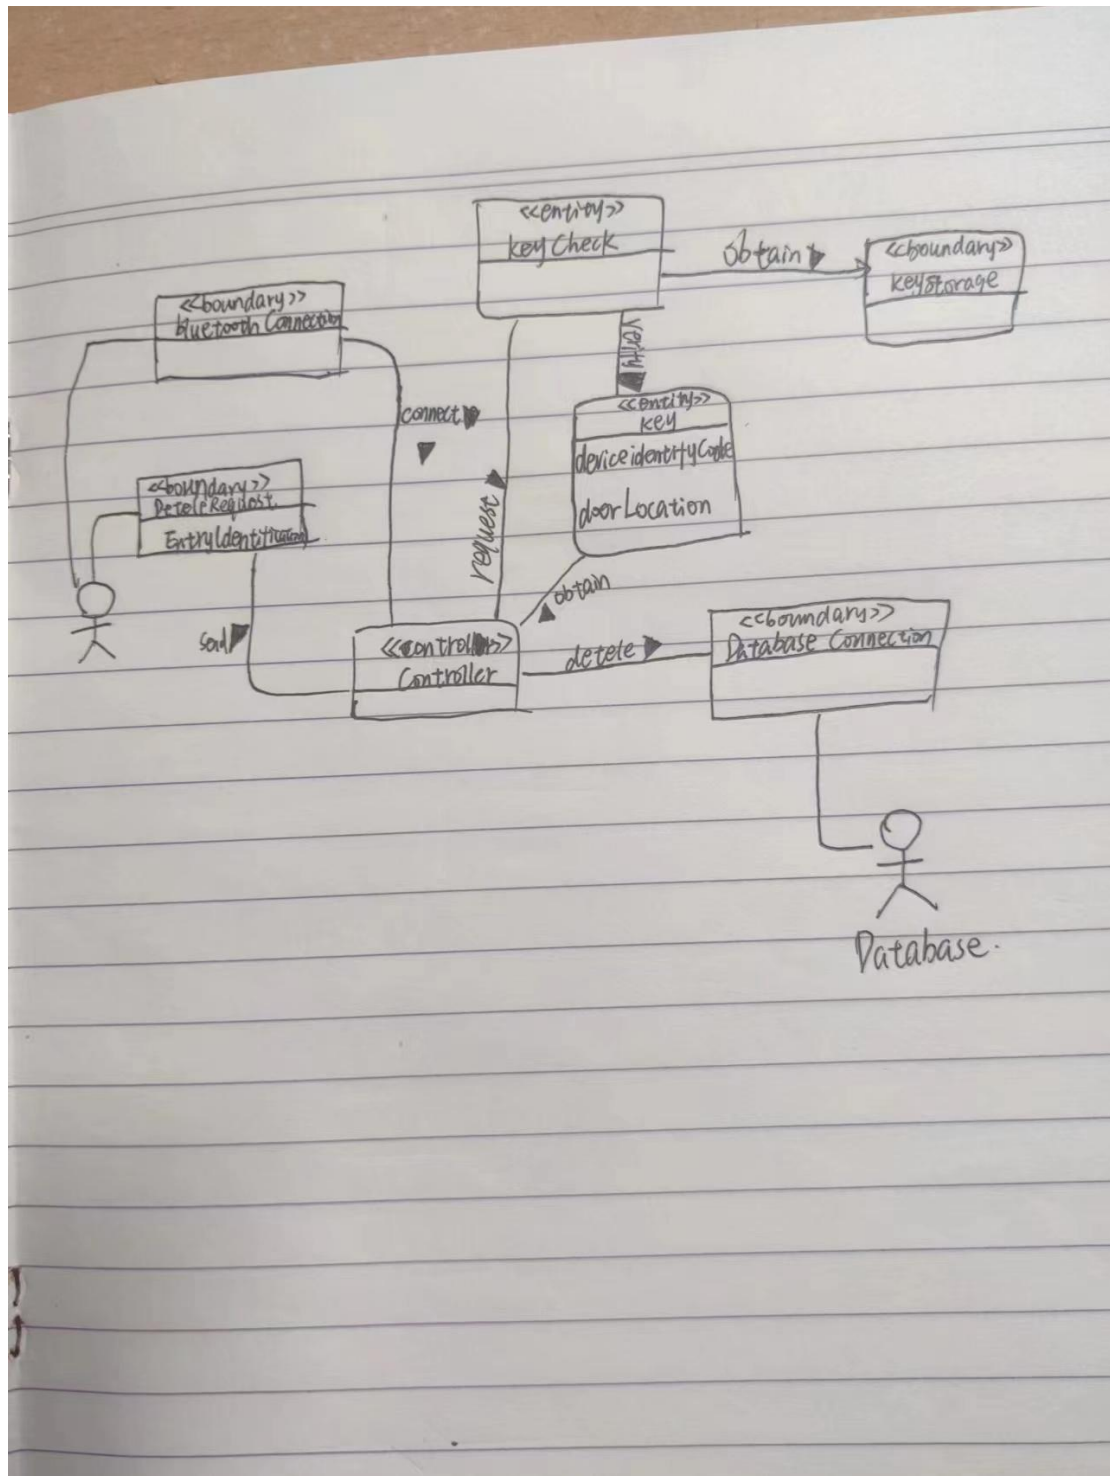 <<entity>>
keyCheck
obtain
<<boundary>>
keyStorage
<<boundary>>
bluetooth Connection
verify
connect
<<entity>>
key
deviceidentityCode
doorLocation
<<boundary>>
Detele Request
EntryIdentification
request
obtain
send
<<controller>>
Controller
detele
<<boundary>>
Database Connection
Database.